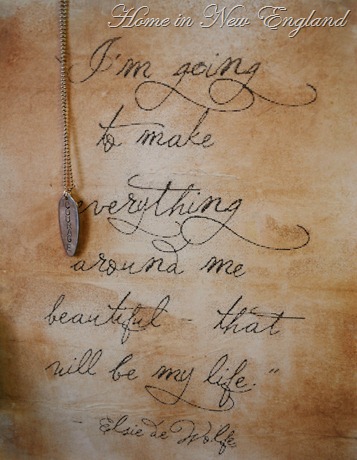 Home in New England
"I'm going
to make
everything
around me
beautiful - that
will be my life."
- Elsie de Wolfe